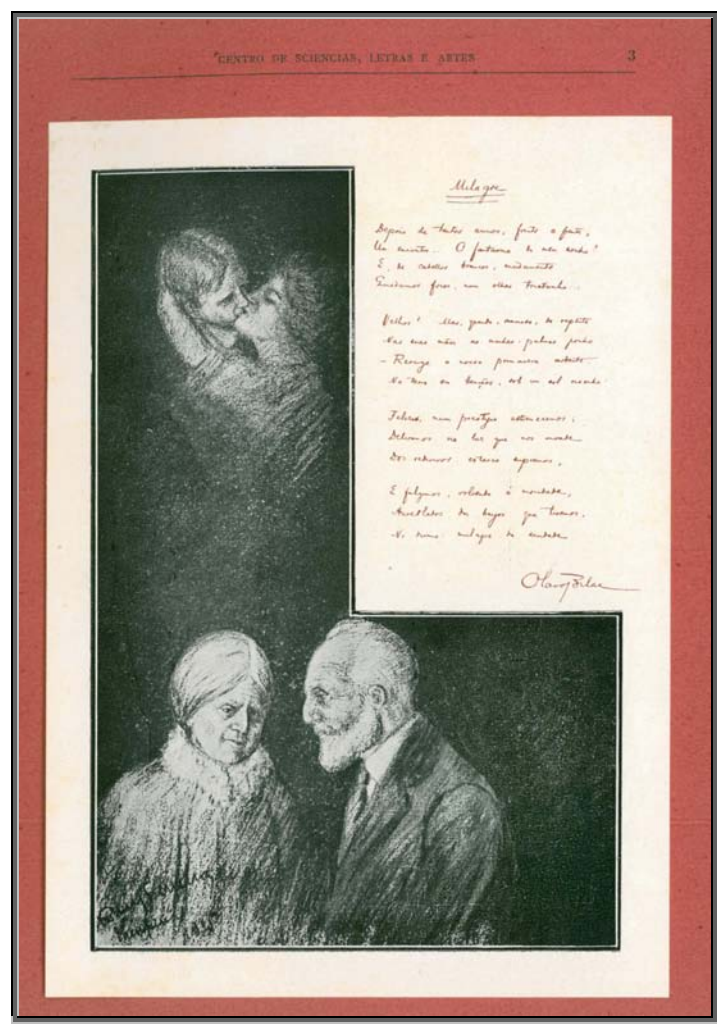 CENTRO DE SCIENCIAS, LETRAS E ARTES
3
Milagre
Depois de tantos annos, frente a frente,
Um encontro... O fantasma do meu sonho!
E, de cabellos brancos, mudamente
Quedamos frios, num olhar tristonho...
Velhos! Mas, quando, ansioso, de repente
Nas suas mãos as minhas palmas ponho
a nossa primavera ardente
Na terra em bençãos, sob um sol risonho
Felizes, num prestigio estremecemos;
Deliramos na luz que nos invade
Dos redivivos extases supremos,
E fulgimos, volvendo á mocidade,
Aureolados dos beijos que tivemos,
No divino milagre da saudade
Olavo Bilac